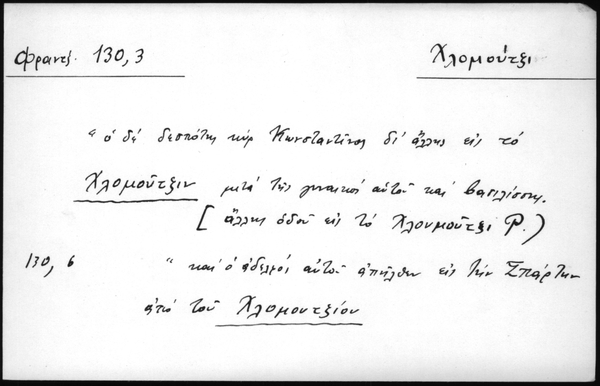 Φραντζ. 130,3 Χλομούτζι
"ὁ δέ δεσπότης κύρ Κωνσταντῖνος δι' ἄλλης εἰς τό
Χλομοῦτζιν μετά τῆς γυναικός αὐτοῦ καί βασιλίσσης.
[ἄλλης ὁδοῦ εἰς τό Χλουμούτζι P.)
130, 6 "καί ὁ ἀδελφός αὐτοῦ ἀπῆλθεν εἰς τήν Σπάρτην
ἀπό τοῦ Χλομουτζίου